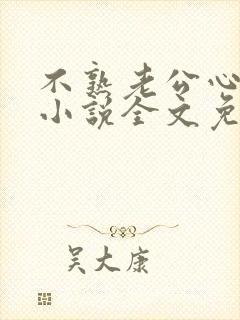 不熟老公心
小说全文免
吴大康